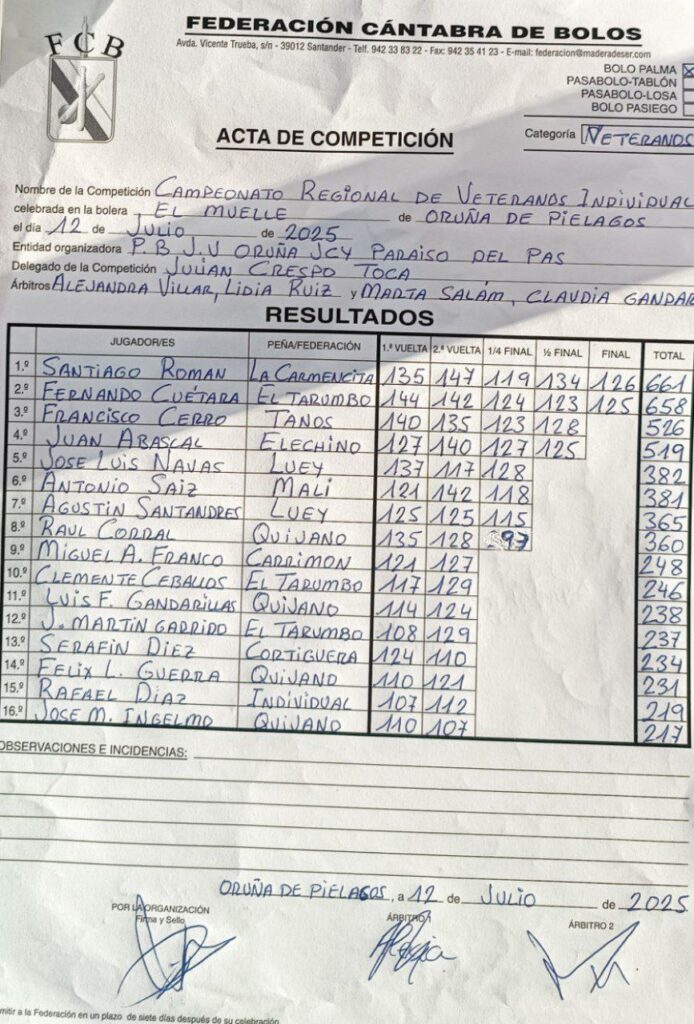 FCB
FEDERACIÓN CÁNTABRA DE BOLOS
Avda. Vicente Trueba, s/n - 39012 Santander - Telf. 942 33 83 22 - Fax: 942 35 41 23 - E-mail: federacion@maderadeser.com
BOLO PALMA X
PASABOLO-TABLÓN
PASABOLO-LOSA
BOLO PASIEGO
ACTA DE COMPETICIÓN
Categoría VETERANOS
Nombre de la Competición CAMPEONATO REGIONAL DE VETERANOS INDIVIDUAL
celebrada en la bolera EL MUELLE de ORUÑA DE PIELAGOS
el día 12 de JULIO de 2025
Entidad organizadora P.B J.V ORUÑA JCY PARAISO DEL PAS
Delegado de la Competición JULIAN CRESPO TOCA
Árbitros ALEJANDRA VILLAR, LIDIA RUIZ y MARTA SALÁM, CLAUDIA GANDAR
RESULTADOS
JUGADOR/ES PEÑA/FEDERACIÓN 1.ª VUELTA 2.ª VUELTA 1/4 FINAL ½ FINAL FINAL TOTAL
1.º SANTIAGO ROMAN LA CARMENCITA 135 147 119 134 126 661
2.º FERNANDO CUÉTARA EL TARUMBO 144 142 124 123 125 658
3.º FRANCISCO CERRO TANOS 140 135 123 128 526
4.º JUAN ABASCAL ELECHINO 127 140 127 125 519
5.º JOSE LUIS NAVAS LUEY 137 117 128 382
6.º ANTONIO SAIZ MALI 121 142 118 381
7.º AGUSTIN SANTANDRES LUEY 125 125 115 365
8.º RAUL CORRAL QUIJANO 135 128 97 360
9.º MIGUEL A. FRANCO CARRIMON 121 127 248
10.º CLEMENTE CEBALLOS EL TARUMBO 117 129 246
11.º LUIS F. GANDARILLAS QUIJANO 114 124 238
12.º J. MARTIN GARRIDO EL TARUMBO 108 129 237
13.º SERAFIN DIEZ CORTIGUERA 124 110 234
14.º FELIX L. GUERRA QUIJANO 110 121 231
15.º RAFAEL DIAZ INDIVIDUAL 107 112 219
16.º JOSE M. INGELMO QUIJANO 110 107 217
OBSERVACIONES E INCIDENCIAS:
ORUÑA DE PIELAGOS, a 12 de JULIO de 2025
POR LA ORGANIZACIÓN
Firma y Sello
ÁRBITRO 1
ÁRBITRO 2
mitir a la Federación en un plazo de siete días después de su celebración